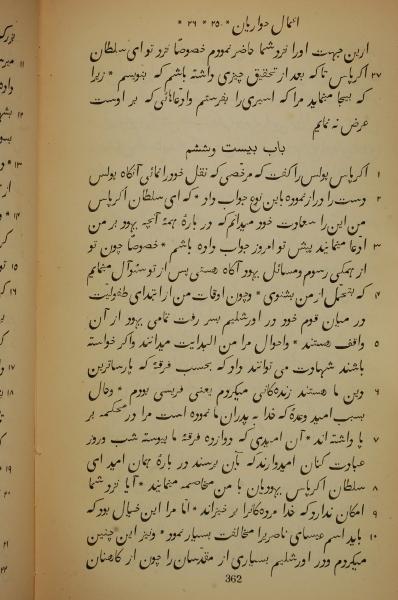 اعمال حواریان * ۲۵ * ۲۶ *
ازین جهت اورا نزد شما حاضر نمودم خصوصًا نزد تو ای سلطان
۲۷ اکرپاس تا که بعد از تحقیق چیزی داشته باشم که بنویسم * زیرا
که بیجا مینماید مرا که اسیری را بفرستم وادعائی که بر اوست
عرض نه نمایم
باب بیست وششم
۱ اکرپاس پولس را کفت که مرخّصی که نقل خود را نمائی آنکاه پولس
۲ دست را دراز نموده باین نوع جواب داد * که ای سلطان اکرپاس
من این را سعادت خود میدانم که در بارهٔ همهٔ آنچه یهود بر من
۳ ادعا مینمایند پیش تو امروز جواب داده باشم * خصوصًا چون تو
از همکی رسوم ومسائل یهود آکاه هستی پس از تو سئوآل مینمایم
۴ که بتحمّل از من بشنوی * وچون اوقات من از ابتدای طفولیّت
در میان قوم خود در اورشلیم بسر رفت تمامی یهود از آن
۵ واقف هستند * واحوال مرا من البدایت میدانند واکر خواسته
باشند شهادت می توانند داد که بحسب فرقهٔ که پارساترین
۶ دین ما هستند زندکانی میکردم یعنی فریسی بودم * وحال
بسبب امید وعدهٔ که خدا به پدران ما نموده است مرا در محکمه بر
۷ پا داشته اند * آن امیدی که دوازده فرقهٔ ما پیوسته شب وروز
عبادت کنان امیدوارند که بآن برسند در بارهٔ همان امید ای
۸ سلطان اکرپاس یهودیان با من مخاصمه مینمایند * آیا نزد شما
۹ امکان ندارد که خدا مرده کانرا بر خیزاند * امّا مرا این خیال بود که
۱۰ باید اسم عیسای ناصریرا مخالفت بسیار نمود * ونیز این چنین
میکردم ودر اورشلیم بسیاری از مقدسان را چون از کاهنان
362